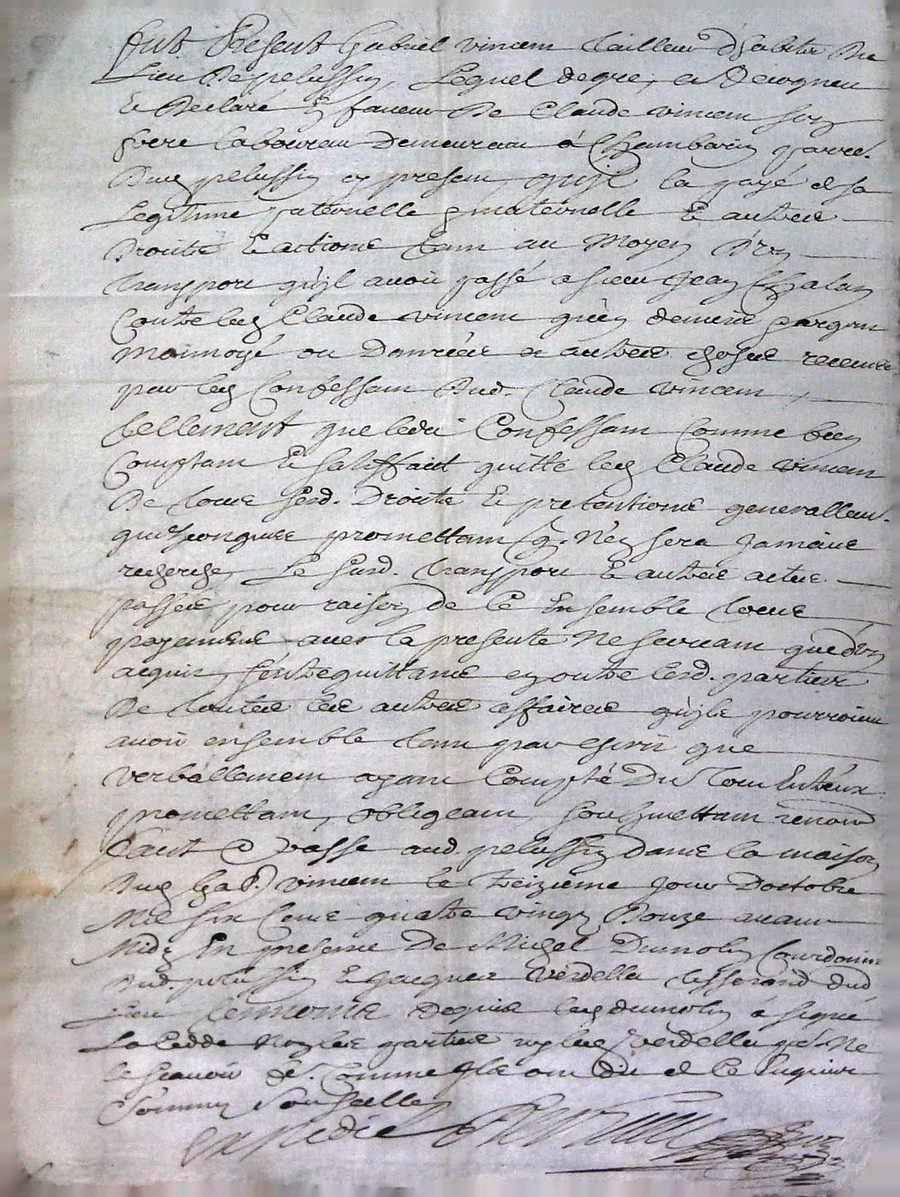 fut Présent Gabriel vincent tailleur d'habits du
Lieu de pelussin, Lequel de gré, a
a declaré En faveur de Claude vincent son
frere laboureur demeurant a Chambarin parre.
dud pelussin cy present, quil la payé de sa
Legitime paternelle & maternelle & autres
droits & actions tant au moyen d'un
transport quil avoit passé a sieur Jean Chalan
Contre led Claude vincent quen deniers dargent
monnoyé ou danrées et autres choses receues
par led Confessant dud. Claude vincent
tellement que ledit Confessant comme bien
Comptant & satisffait quitte led Claude vincent
de tous sesd. droits & pretentions generallem.
quelconques promettant q. n'en sera jamais
recherché, Le susd. transport & autres actes
passés pour raison de ce Ensemble tous
payements avec la presente ne servant que d'un
acquit, s'entrequittants en outre lesd. parties
de toutes les autres affaires qu'ils pourroient
avoir ensemble tant par escrit que
verballement ayant Compté du tout Entr'eux
promettant, obligeant, soubzmettant, renond
faict & passé aud. pelussin dans la maison
dud Gab. vincent le treizieme jour doctobre
Mil six Cens quatre vingt douze avant
Midy En presence de Michel Dumolin Courdonier
dud. pelussin & Jacques verdella tisserand dud
Lieu temoins dequis led dumolin a signé
La Cedde non les parties ny led verdella p. ne
le scavoir de. Comme Ils ont dit de ce Enquis
& sommés